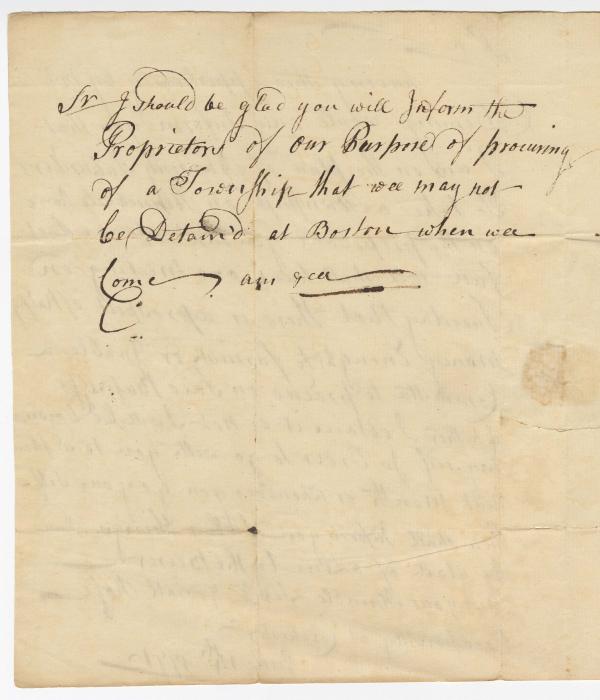 Sr I should be glad you will Inform the
Proprietors of our Purpose of procuring
of a Township that wee may not
be Detain'd at Boston when wee
Come am &ca